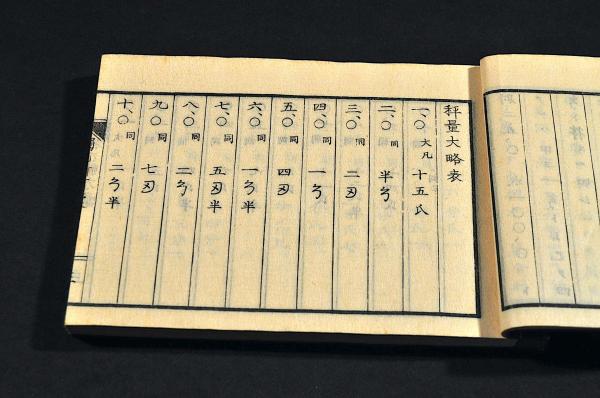 秤量大略表
一、〇 大凡 十五氏
二、〇 同 半ㄋ
三、〇 同 二刄
四、〇 同 一ㄋ
五、〇 同 四刄
六、〇 同 一ㄋ半
七、〇 同 五刄半
八、〇 同 二ㄋ
九、〇 同 七刄
十、〇 同 二ㄋ半